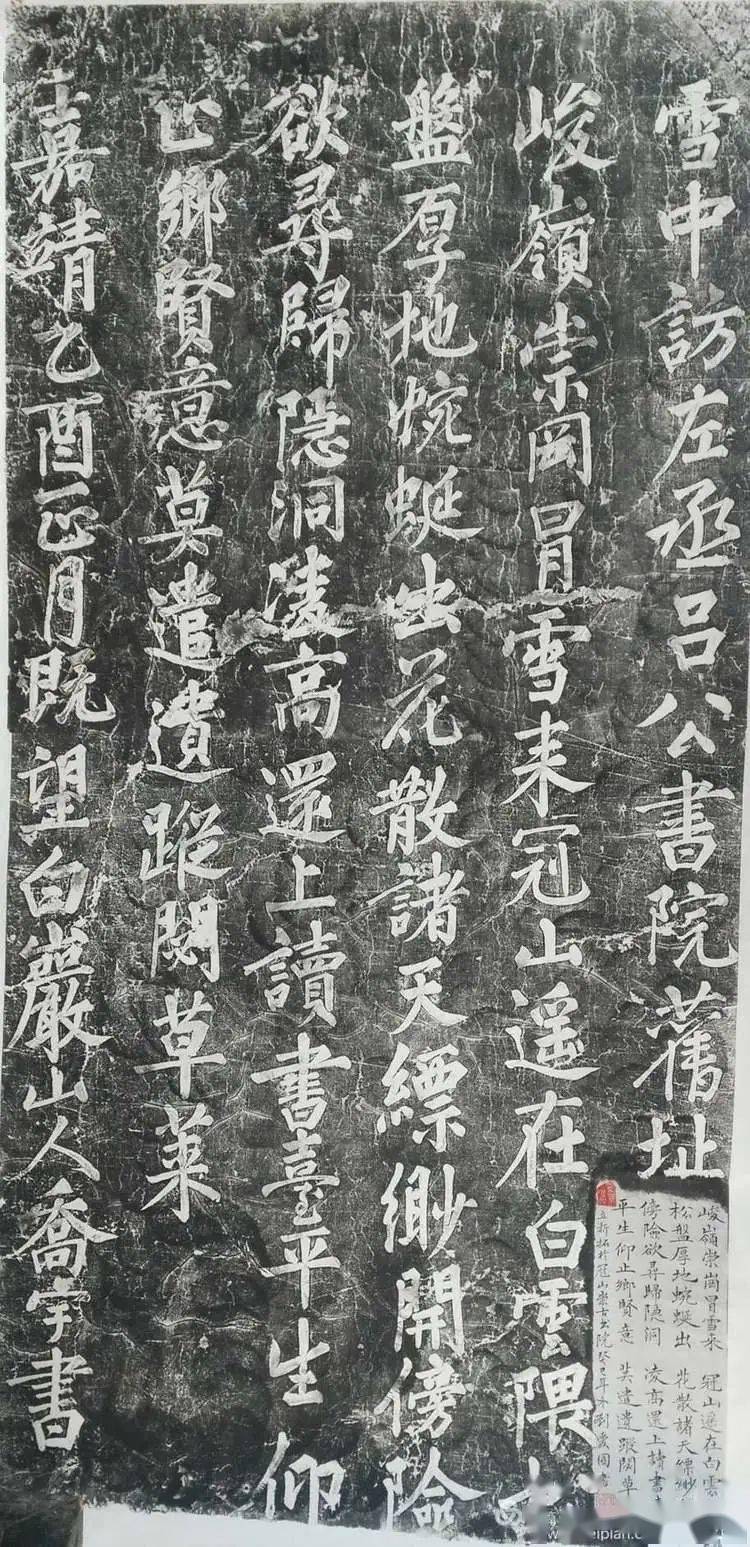 雪中訪左丞呂公書院舊址
峻嶺崇岡冒雪来冠山遥在白雲隈松
盤厚地蜿蜒出花散諸天縹緲開傍險
欲尋歸隐洞凌高還上讀書臺平生仰
止鄉賢意莫遣遺蹤閟草萊
嘉靖乙酉正月既望白巖山人喬宇書
峻嶺崇崗冒雪来 冠山遥在白雲
松盤厚地蜿蜒出 花散諸天縹緲
傍險欲尋歸隐洞 凌高還上讀書
平生仰止鄉賢意 莫遣遺蹤閟草
新拓於冠山崇古書院癸巳年冬劉愛國